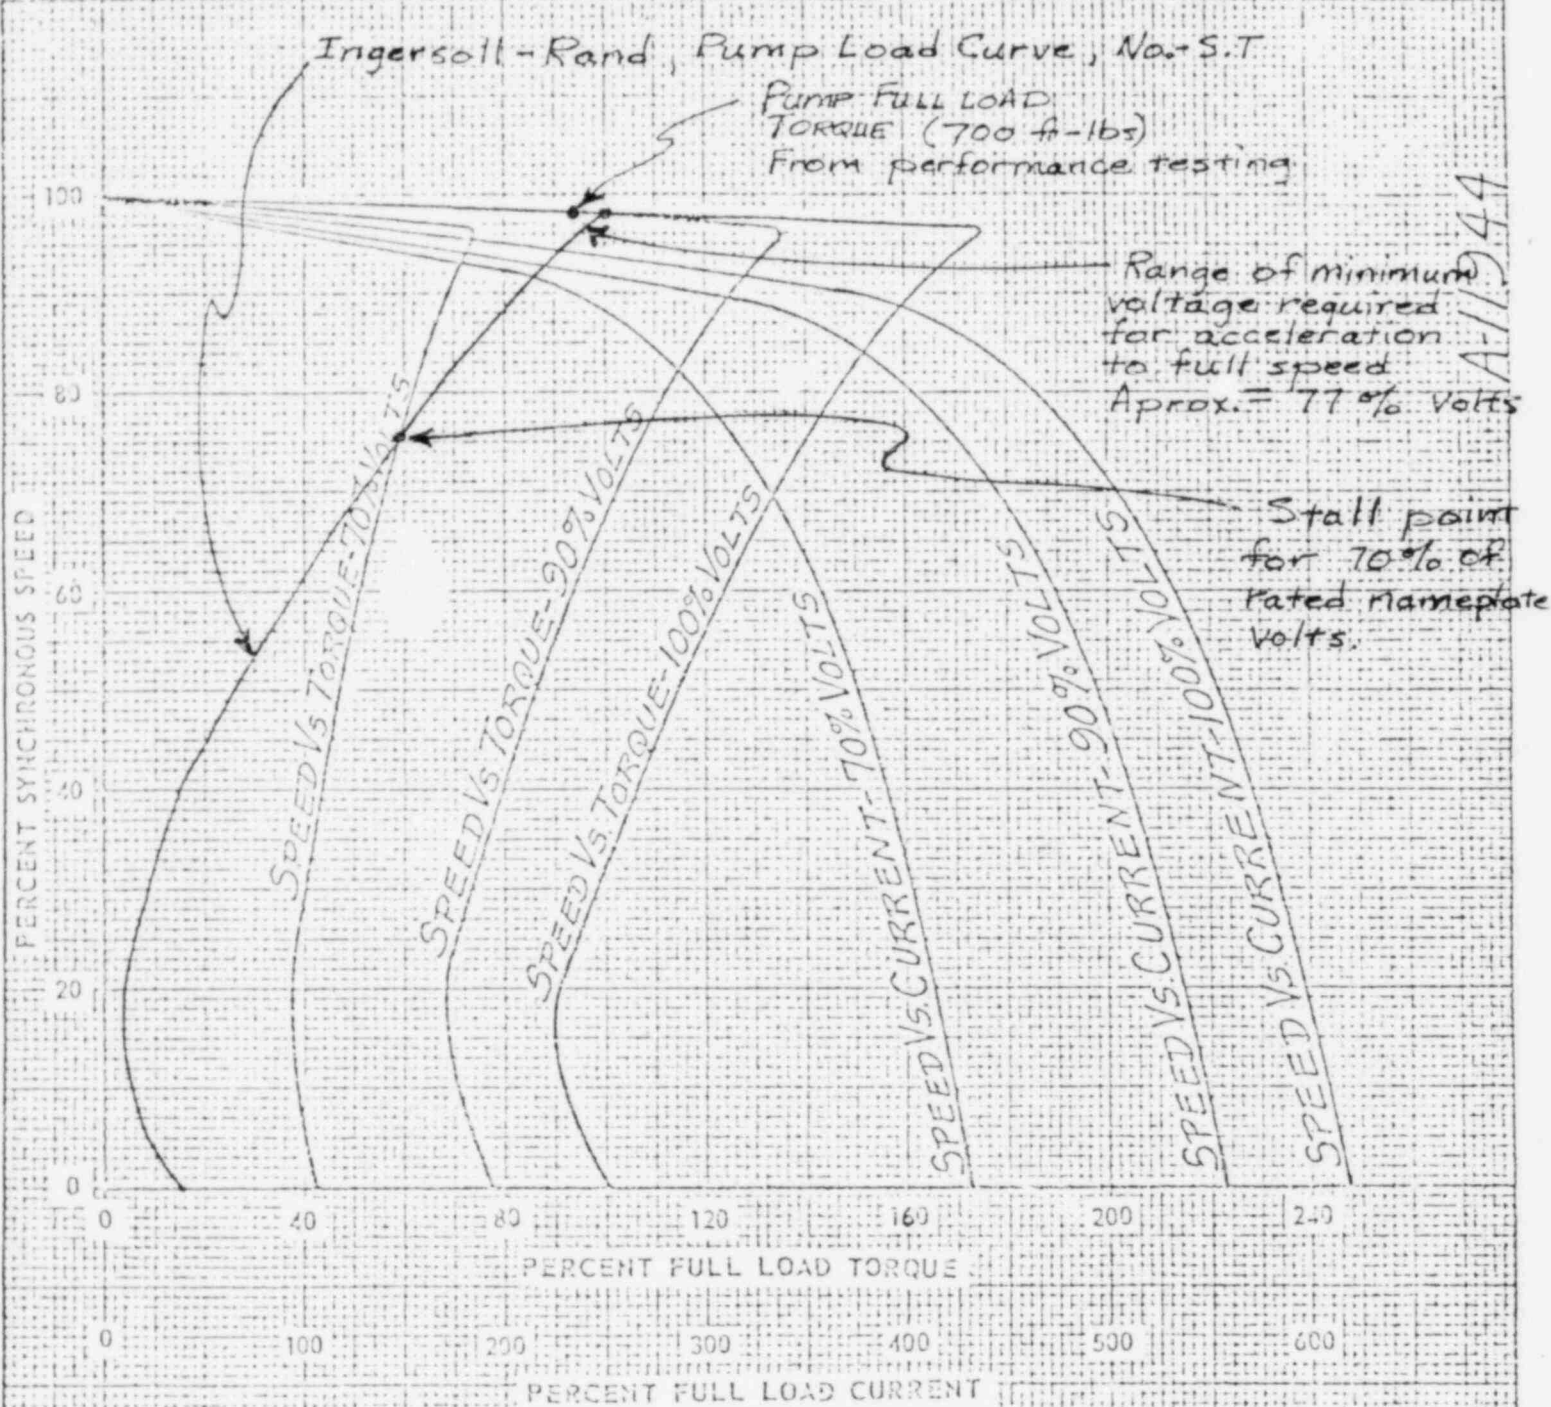 Ingersoll-Rand, Pump Load Curve, No.-S.T
PUMP FULL LOAD
TORQUE (700 ft-lbs)
From performance testing
A-11944
Range of minimum
voltage required
for acceleration
to full speed
Aprox.= 77% Volts
Stall point
for 70% of
rated nameplate
volts.
PERCENT SYNCHRONOUS SPEED
100
80
60
40
20
0
SPEED Vs TORQUE-70% VOLTS
SPEED Vs TORQUE-90% VOLTS
SPEED Vs. TORQUE-100% VOLTS
SPEED Vs. CURRENT-70% VOLTS
SPEED Vs. CURRENT-90% VOLTS
SPEED Vs. CURRENT-100% VOLTS
0 40 80 120 160 200 240
PERCENT FULL LOAD TORQUE
0 100 200 300 400 500 600
PERCENT FULL LOAD CURRENT